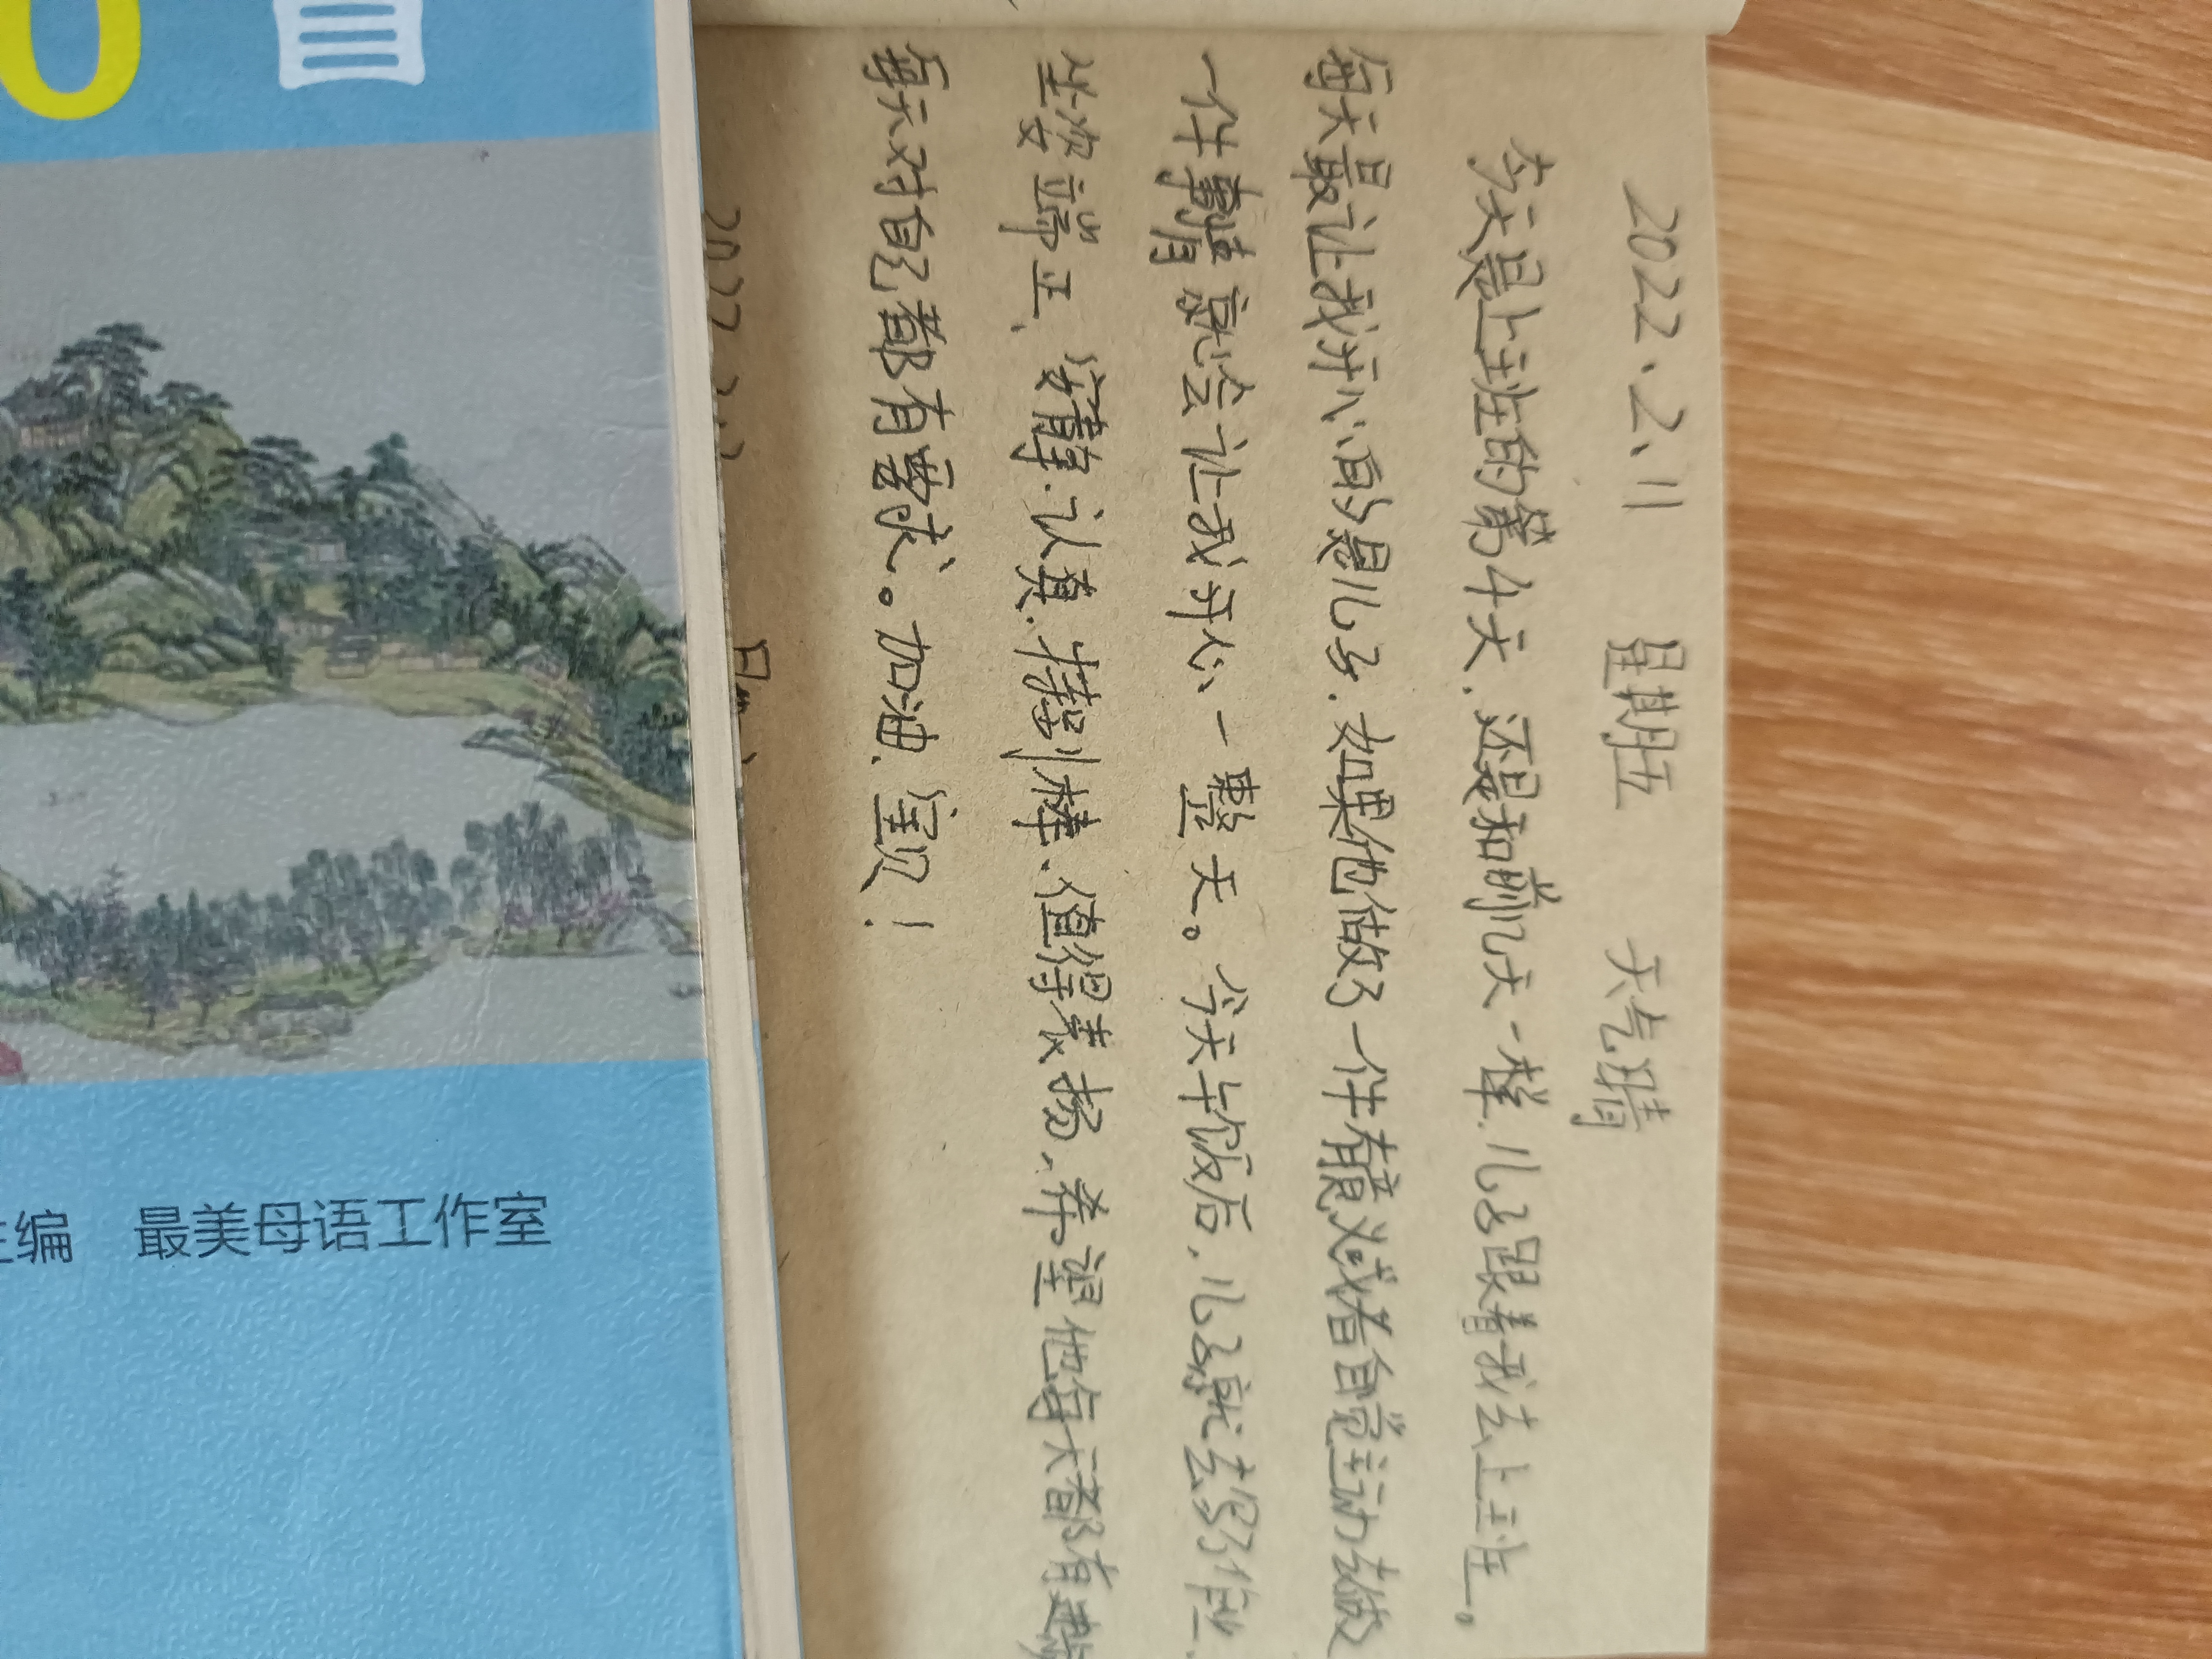 2022、2、11 星期五 天气晴
今天是上班的第4天,还是和前几天一样,儿子跟着我去上班。
每天最让我开心的是儿子,如果他做了一件有意义或者自觉主动去做
一件事情就会让我开心一整天。今天午饭后,儿子就去写作业、
坐姿端正、安静、认真、特别棒、值得表扬,希望他每天都有进
每天对自己都有要求。加油、宝贝!
主编 最美母语工作室